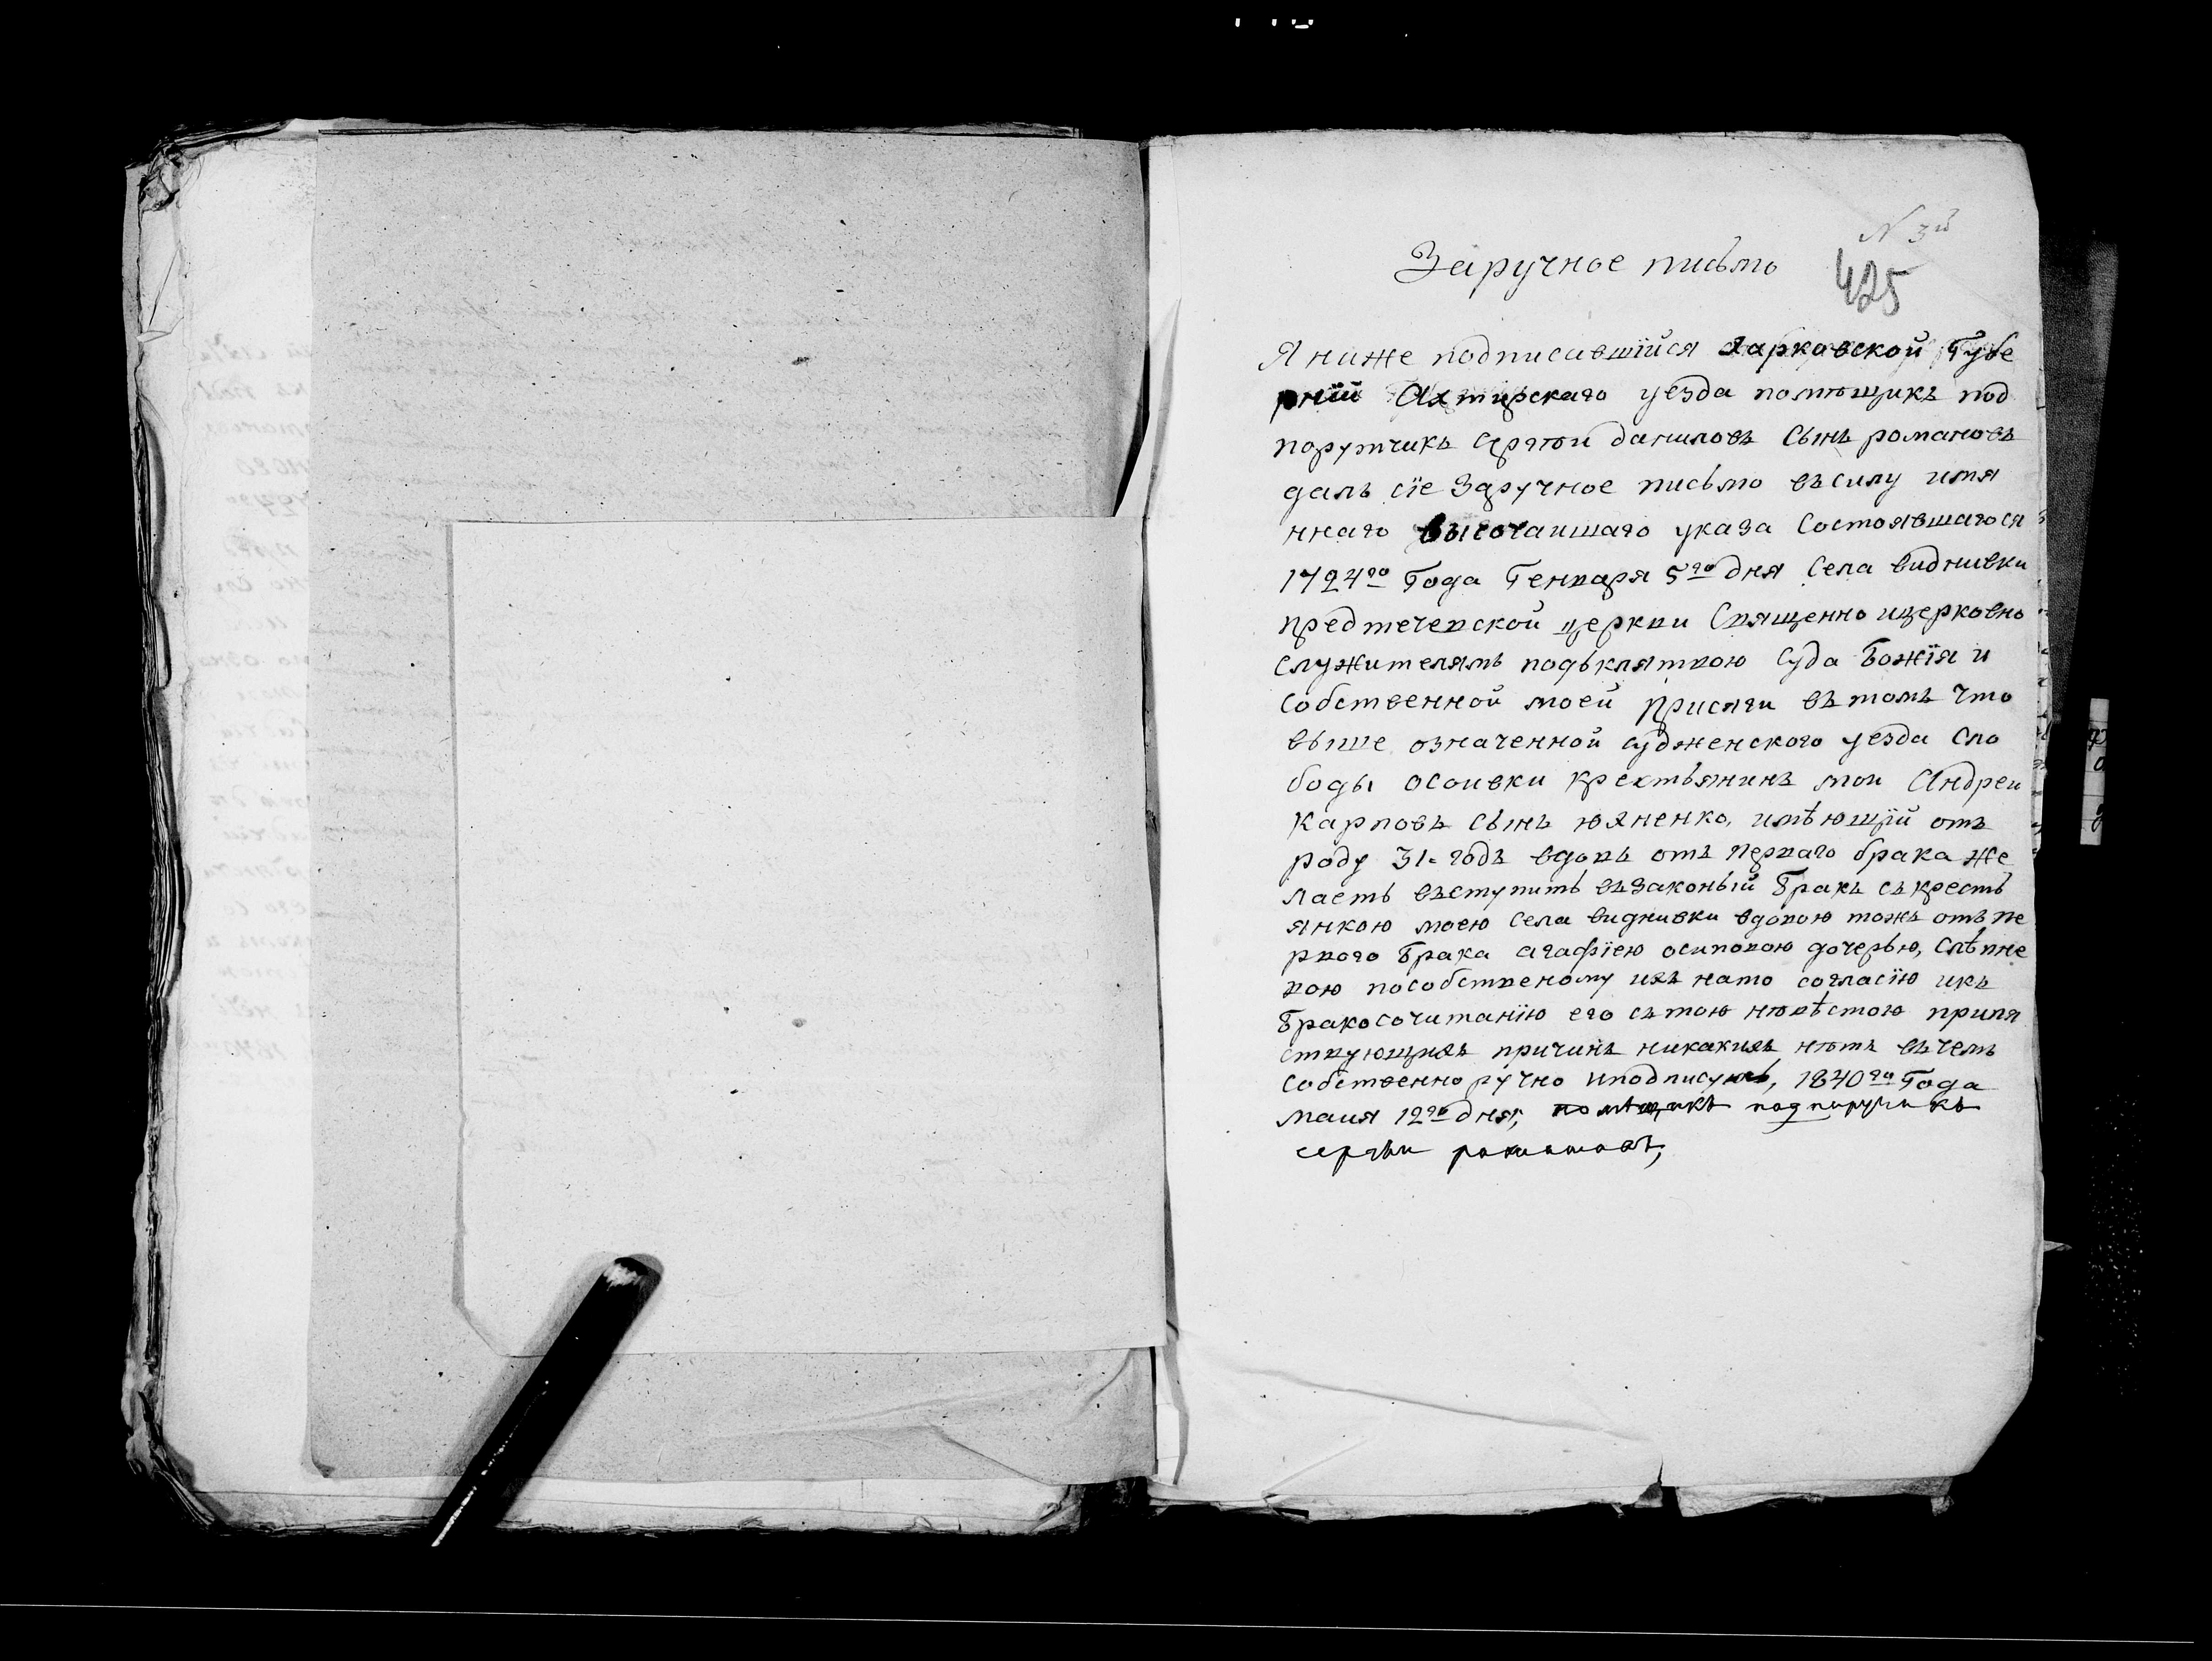 N 3й
Заручное письмо
425
Я ниже подписавшійся харковской Губе
рніи Ахтирскаго уезда помѣщикъ под
порутчикъ Сергѣи даниловъ Сынъ романовъ
далъ сіе Заручное письмо въсилу имя
ннаго высочаишаго указа Состоявшагося
1724го Года Генваря 5го дня Села видникки
предтечевской церкви Священно ицерковно
служителямъ подъклятвою Суда Божія и
Собственной моей присяги въ томъ что
выше означенной судженского уезда Сло
боды осоивки крестьянинъ мои Андреи
Карповъ сынъ юхненко, имѣющій отъ
роду 31. годъ вдовъ отъ перваго брака же
лаетъ въступить възаконый Бракъ съ кресть
янкою моею Села видникки вдовою тожъ отъ пе
рвого Брака агафіею осиповою дочерью, Слѣпне
вою пособственому ихъ нато согласію икъ
Бракосочитанію его съ тою невѣстою припя
ствующихъ причинъ никакихъ нѣтъ въ чемъ
Собственно ручно иподписуюсь, 1840го Года
маия 12го дня, помѣщикъ подпоручикъ
сергѣи романовъ,